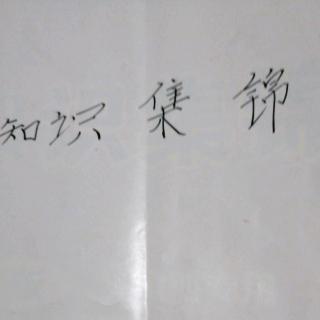 知识集锦